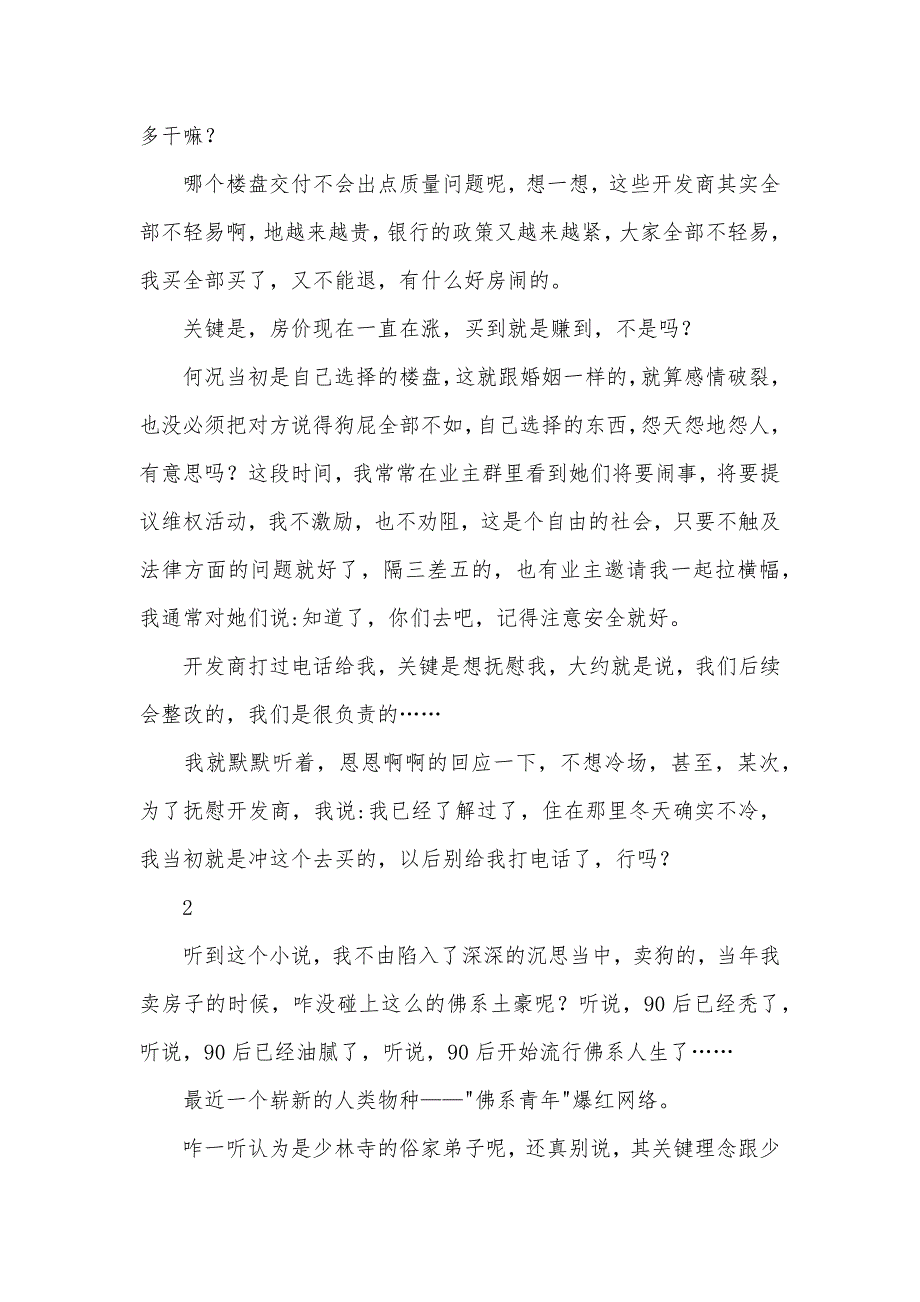 多干嘛？
哪个楼盘交付不会出点质量问题呢，想一想，这些开发商其实全
部不轻易啊，地越来越贵，银行的政策又越来越紧，大家全部不轻易，
我买全部买了，又不能退，有什么好房闹的。
关键是，房价现在一直在涨，买到就是赚到，不是吗？
何况当初是自己选择的楼盘，这就跟婚姻一样的，就算感情破裂，
也没必须把对方说得狗屁全部不如，自己选择的东西，怨天怨地怨人，
有意思吗？这段时间，我常常在业主群里看到她们将要闹事，将要提
议维权活动，我不激励，也不劝阻，这是个自由的社会，只要不触及
法律方面的问题就好了，隔三差五的，也有业主邀请我一起拉横幅，
我通常对她们说:知道了，你们去吧，记得注意安全就好。
开发商打过电话给我，关键是想抚慰我，大约就是说，我们后续
会整改的，我们是很负责的……
我就默默听着，恩恩啊啊的回应一下，不想冷场，甚至，某次，
为了抚慰开发商，我说:我已经了解过了，住在那里冬天确实不冷，
我当初就是冲这个去买的，以后别给我打电话了，行吗？
2
听到这个小说，我不由陷入了深深的沉思当中，卖狗的，当年我
卖房子的时候，咋没碰上这么的佛系土豪呢？听说，90 后已经秃了，
听说，90 后已经油腻了，听说，90 后开始流行佛系人生了……
最近一个崭新的人类物种——"佛系青年"爆红网络。
咋一听认为是少林寺的俗家弟子呢，还真别说，其关键理念跟少